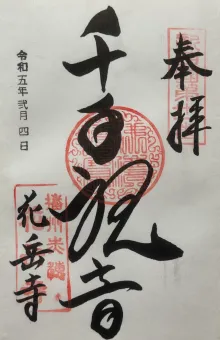 奉拝
千手観音
令和五年弐月四日
花岳寺
播州赤穂